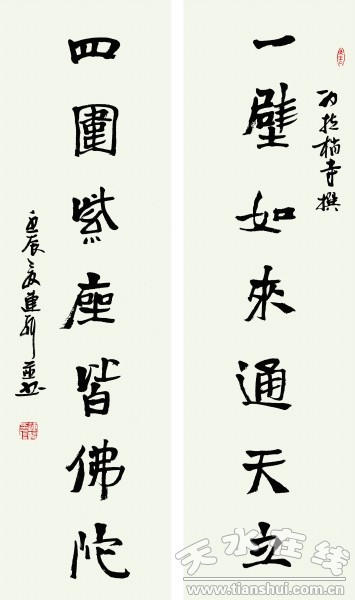 为拉梢寺撰
一壁如來通天立
四圍紫座皆佛陀
壬辰夏
天水在线
www.tianshui.com.cn